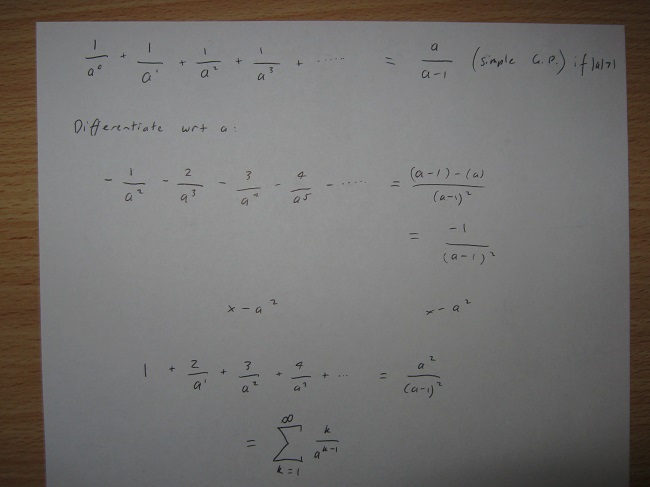 1/a⁰ + 1/a¹ + 1/a² + 1/a³ + ····· = a/(a-1) (simple G.P.) if |a|>1
Differentiate wrt a:
- 1/a² - 2/a³ - 3/a⁴ - 4/a⁵ - ···· = ((a-1)-(a))/(a-1)²
= -1/(a-1)²
x - a² x - a²
1 + 2/a¹ + 3/a² + 4/a³ + ··· = a²/(a-1)²
= ∑_{k=1}^{∞} k/a^{k-1}